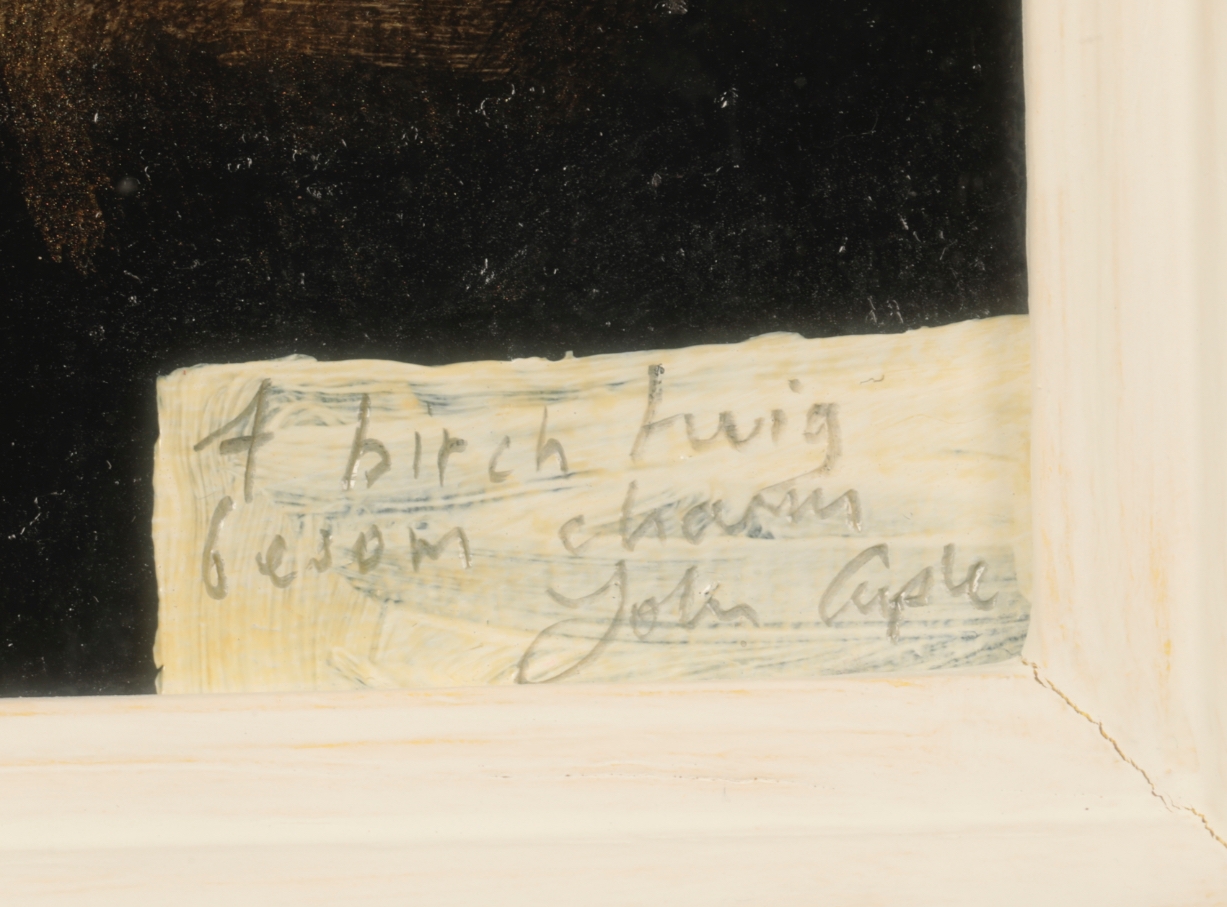 A birch twig
besom charm
John Apple